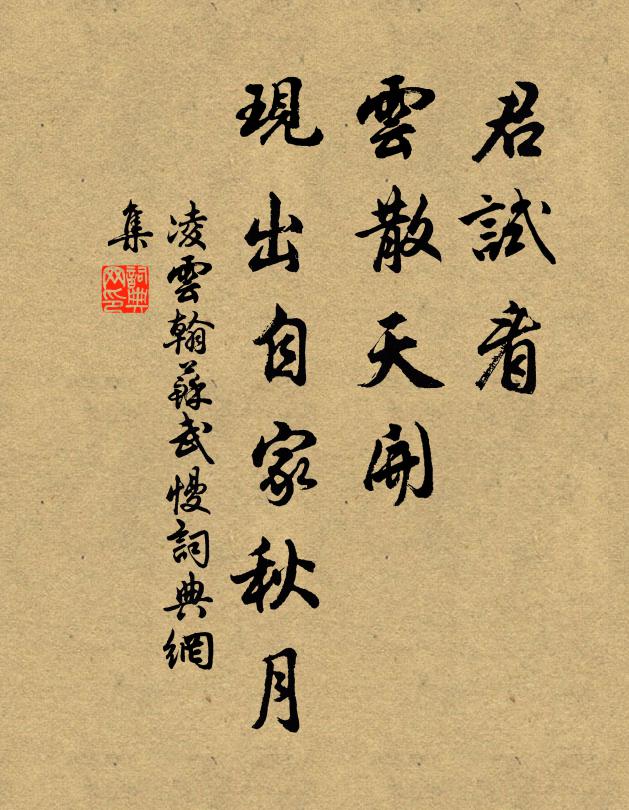 君試看
雲散天開
現出自家秋月
凌雲翰蘇武慢詞典網
集
詞典
网印